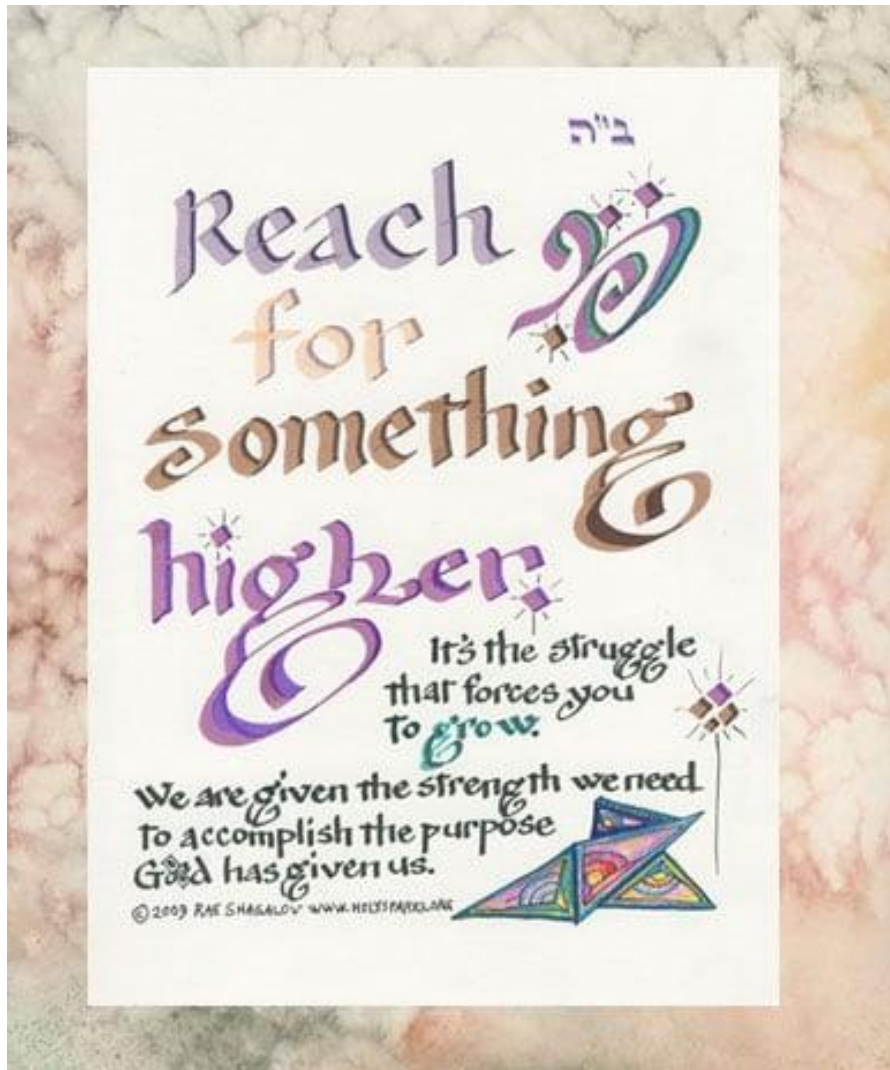 ב"ה
Reach
for
something
higher.
It's the struggle
that forces you
to grow.
We are given the strength we need
to accomplish the purpose
G‑d has given us.
© 2009 RAE SHAGALOV WWW.HOLYSPARKS.ORG